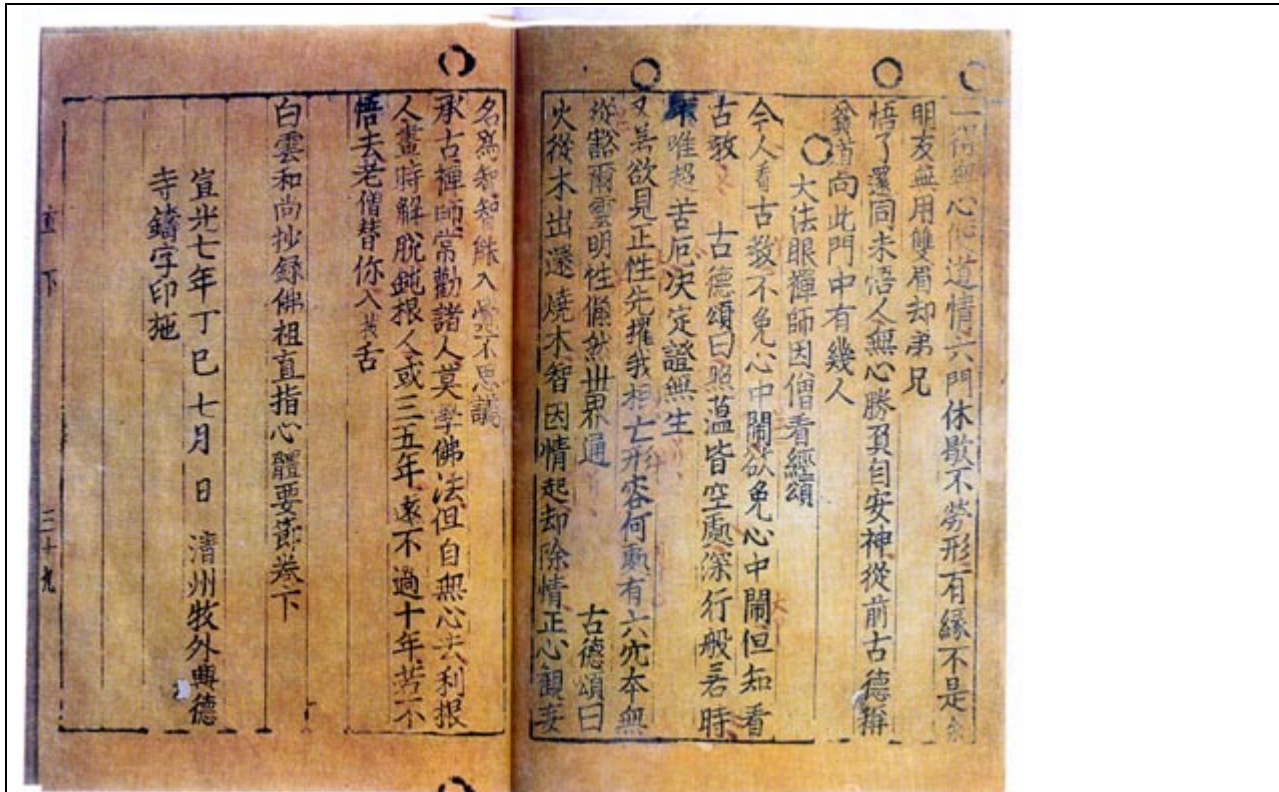 一得無心便道情六門休歇不勞形有緣不是余
朋友無用雙眉却弟兄
悟了還同未悟人無心勝負自安神從前古德稱
貧道向此門中有幾人
大法眼禪師因僧看經頌
今人看古教不免心中鬧欲免心中鬧但知看
古教 古德頌曰照蘊皆空處深行般若時
唯超苦厄決定證無生
又若欲見正性先摧我相亡形容何處有六究本無
從豁爾雲明性翛然世界通 古德頌曰
火從木出還燒木智因情起却除情正心觀妄
名爲智智能入學不思議
承古禪師常勸諸人莫學佛法但自無心去利根
人盡時解脫鈍根人或三五年遠不過十年若不
悟去老僧替你入拔舌
白雲和尚抄錄佛祖直指心體要節卷下
宣光七年丁巳七月 日 淸州牧外興德
寺鑄字印施
直 下
三十九